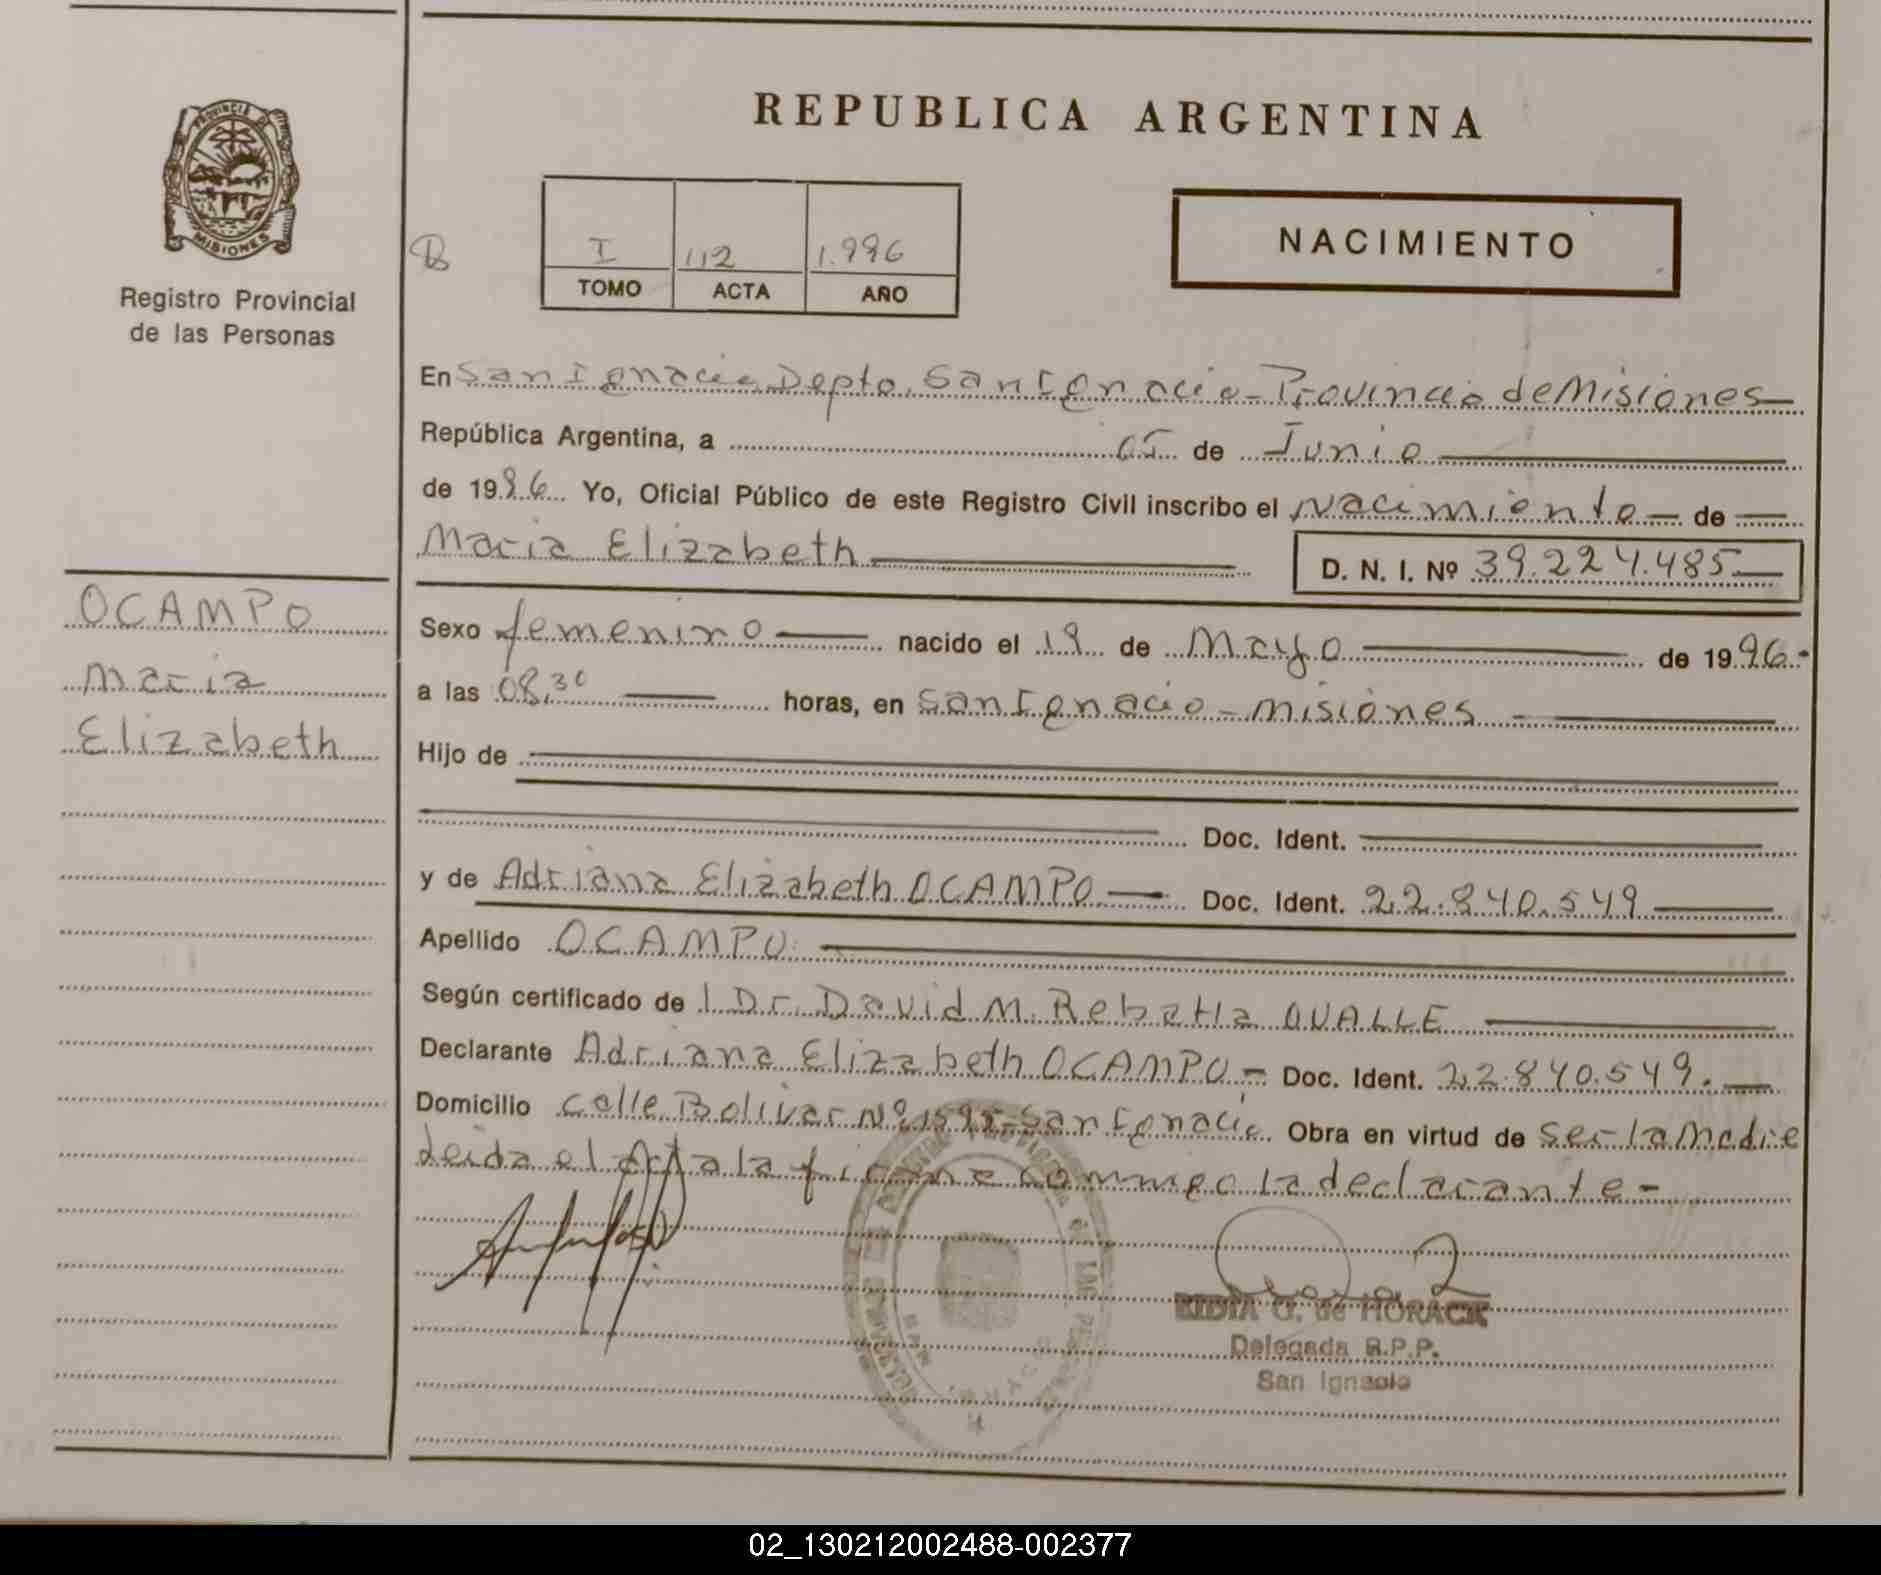 REPUBLICA ARGENTINA
PROVINCIA DE
MISIONES
Registro Provincial
de las Personas
I 112 1.996
TOMO ACTA AÑO
NACIMIENTO
En San Ignacio Depto. San Ignacio - Provincia de Misiones
República Argentina, a 05 de Junio
de 1996 Yo, Oficial Público de este Registro Civil inscribo el nacimiento de
Maria Elizabeth
D. N. I. Nº 39.224.485
OCAMPO
Maria
Elizabeth
Sexo femenino nacido el 19 de Mayo de 1996.
a las 08,30 horas, en San Ignacio - Misiones
Hijo de
Doc. Ident.
y de Adriana Elizabeth OCAMPO Doc. Ident. 22.840.549
Apellido OCAMPO
Según certificado de l Dr. David M. Rebatta OVALLE
Declarante Adriana Elizabeth OCAMPO - Doc. Ident. 22.840.549.
Domicilio calle Bolivar Nº 1595 - San Ignacio Obra en virtud de ser la Madre
Leida el Acta la firma conmigo la declarante -
G. de HORACK
Delegada R.P.P.
San Ignacio
02_130212002488-002377